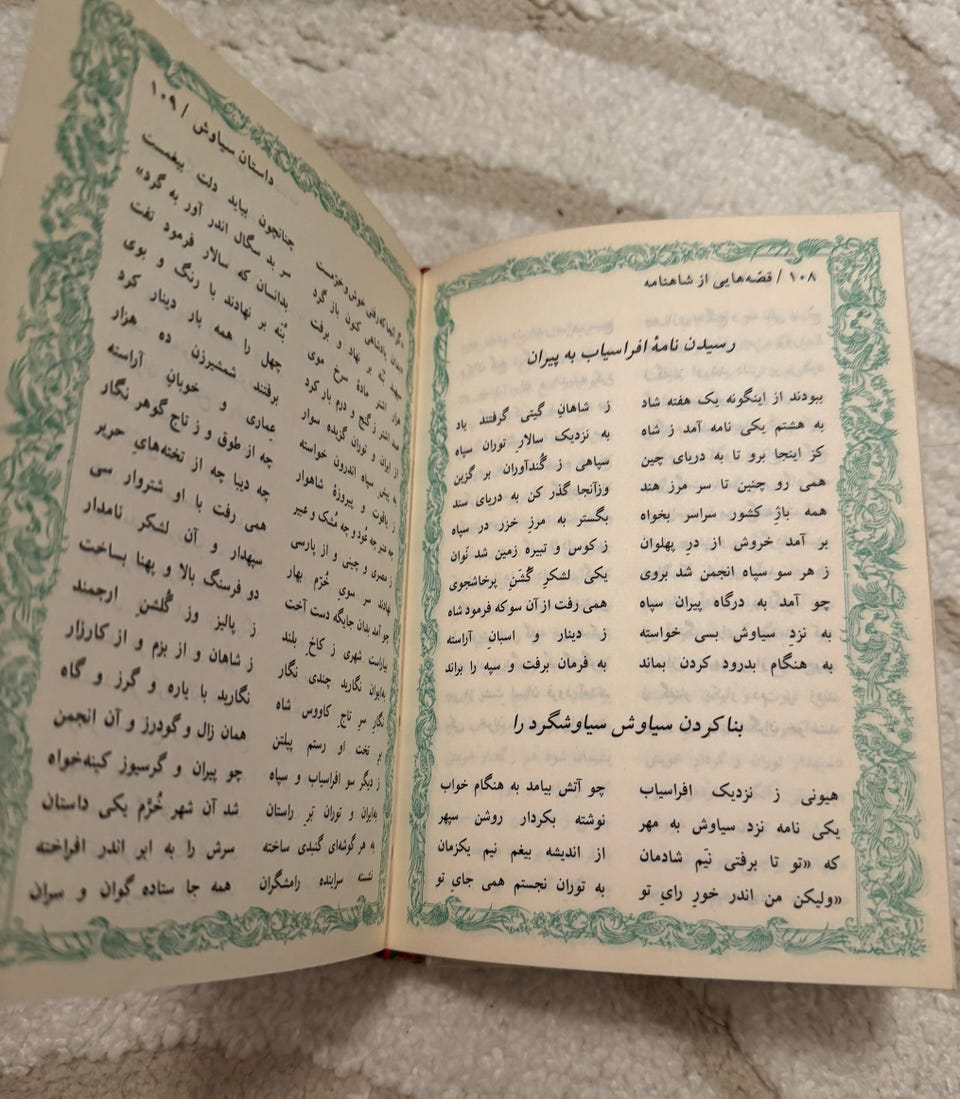 ۱۰۸ / قصّه‌هایی از شاهنامه
رسیدن نامهٔ افراسیاب به پیران
ببودند از اینگونه یک هفته شاد ز شاهانِ گیتی گرفتند یاد
به هشتم یکی نامه آمد ز شاه به نزدیک سالارِ توران سپاه
کز اینجا برو تا به دریای چین سپاهی ز کُندآوران بر گزین
همی رو چنین تا سر مرز هند وزآنجا گذر کن به دریای سند
همه باژِ کشور سراسر بخواه بگستر به مرزِ خزر در سپاه
بر آمد خروش از درِ پهلوان ز کوس و تبیره زمین شد نَوان
ز هر سو سپاه انجمن شد بروی یکی لشکرِ گُشنِ پرخاشجوی
چو آمد به درگاه پیران سپاه همی رفت از آن سو که فرمود شاه
به نزدِ سیاوش بسی خواسته ز دینار و اسبانِ آراسته
به هنگام بدرود کردن بماند به فرمان برفت و سپه را براند
بنا کردن سیاوش سیاوشگرد را
هیونی ز نزدیک افراسیاب چو آتش بیامد به هنگام خواب
یکی نامه نزد سیاوش به مهر نوشته بکردار روشن سپهر
که «تو تا برفتی نیَم شادمان از اندیشه بیغم نیم یکزمان
«ولیکن من اندر خورِ رایِ تو به توران نجستم همی جایِ تو
داستان سیاوش / ۱۰۹
گر آنجا که رفتی خوش و خرّمست چنانچون بباید دلت بیغمست
پادشاهی کنون باز گرد سر بد سگال اندر آور به گرد»
سپهبد بُنه بر نهاد و برفت بدانسان که سالار فرمود تفت
هزار اشتر مادهٔ سرخ موی بُنه بر نهادند با رنگ و بوی
صد اشتر ز گنج و درم بار کرد چهل را همه بار دینار کرد
از ایران و توران گزیده سوار برفتند شمشیرزن ده هزار
به پیش سپاه اندرون خواسته عِماری و خوبانِ آراسته
ز یاقوت و پیروزهٔ شاهوار چه از طوق و ز تاج گوهر نگار
چه عنبر چه عُود و چه مُشک و عبیر چه دیبا چه از تخته‌هایِ حریر
ز مصری و چینی و از پارسی همی رفت با او شتروار سی
نهادند سر سویِ خُرّم بهار سپهدار و آن لشکر نامدار
چو آمد بدان جایگه دست آخت دو فرسنگ بالا و پهنا بساخت
بیاراست شهری ز کاخِ بلند ز پالیز وز گُلشنِ ارجمند
به‌ایوان نگارید چندی نگار ز شاهان و از بزم و از کارزار
نگارِ سرِ تاجِ کاووس شاه نگارید با یاره و گرز و گاه
برِ تخت او رستم پیلتن همان زال و گودرز و آن انجمن
ز دیگر سو افراسیاب و سپاه چو پیران و گرسیوز کینه‌خواه
به‌ایران و توران بَرِ راستان شد آن شهر خُرّم یکی داستان
به هر گوشه‌ای گنبدی ساخته سرش را به ابر اندر افراخته
نشسته سراینده رامشگران همه جا ستاده گوان و سران